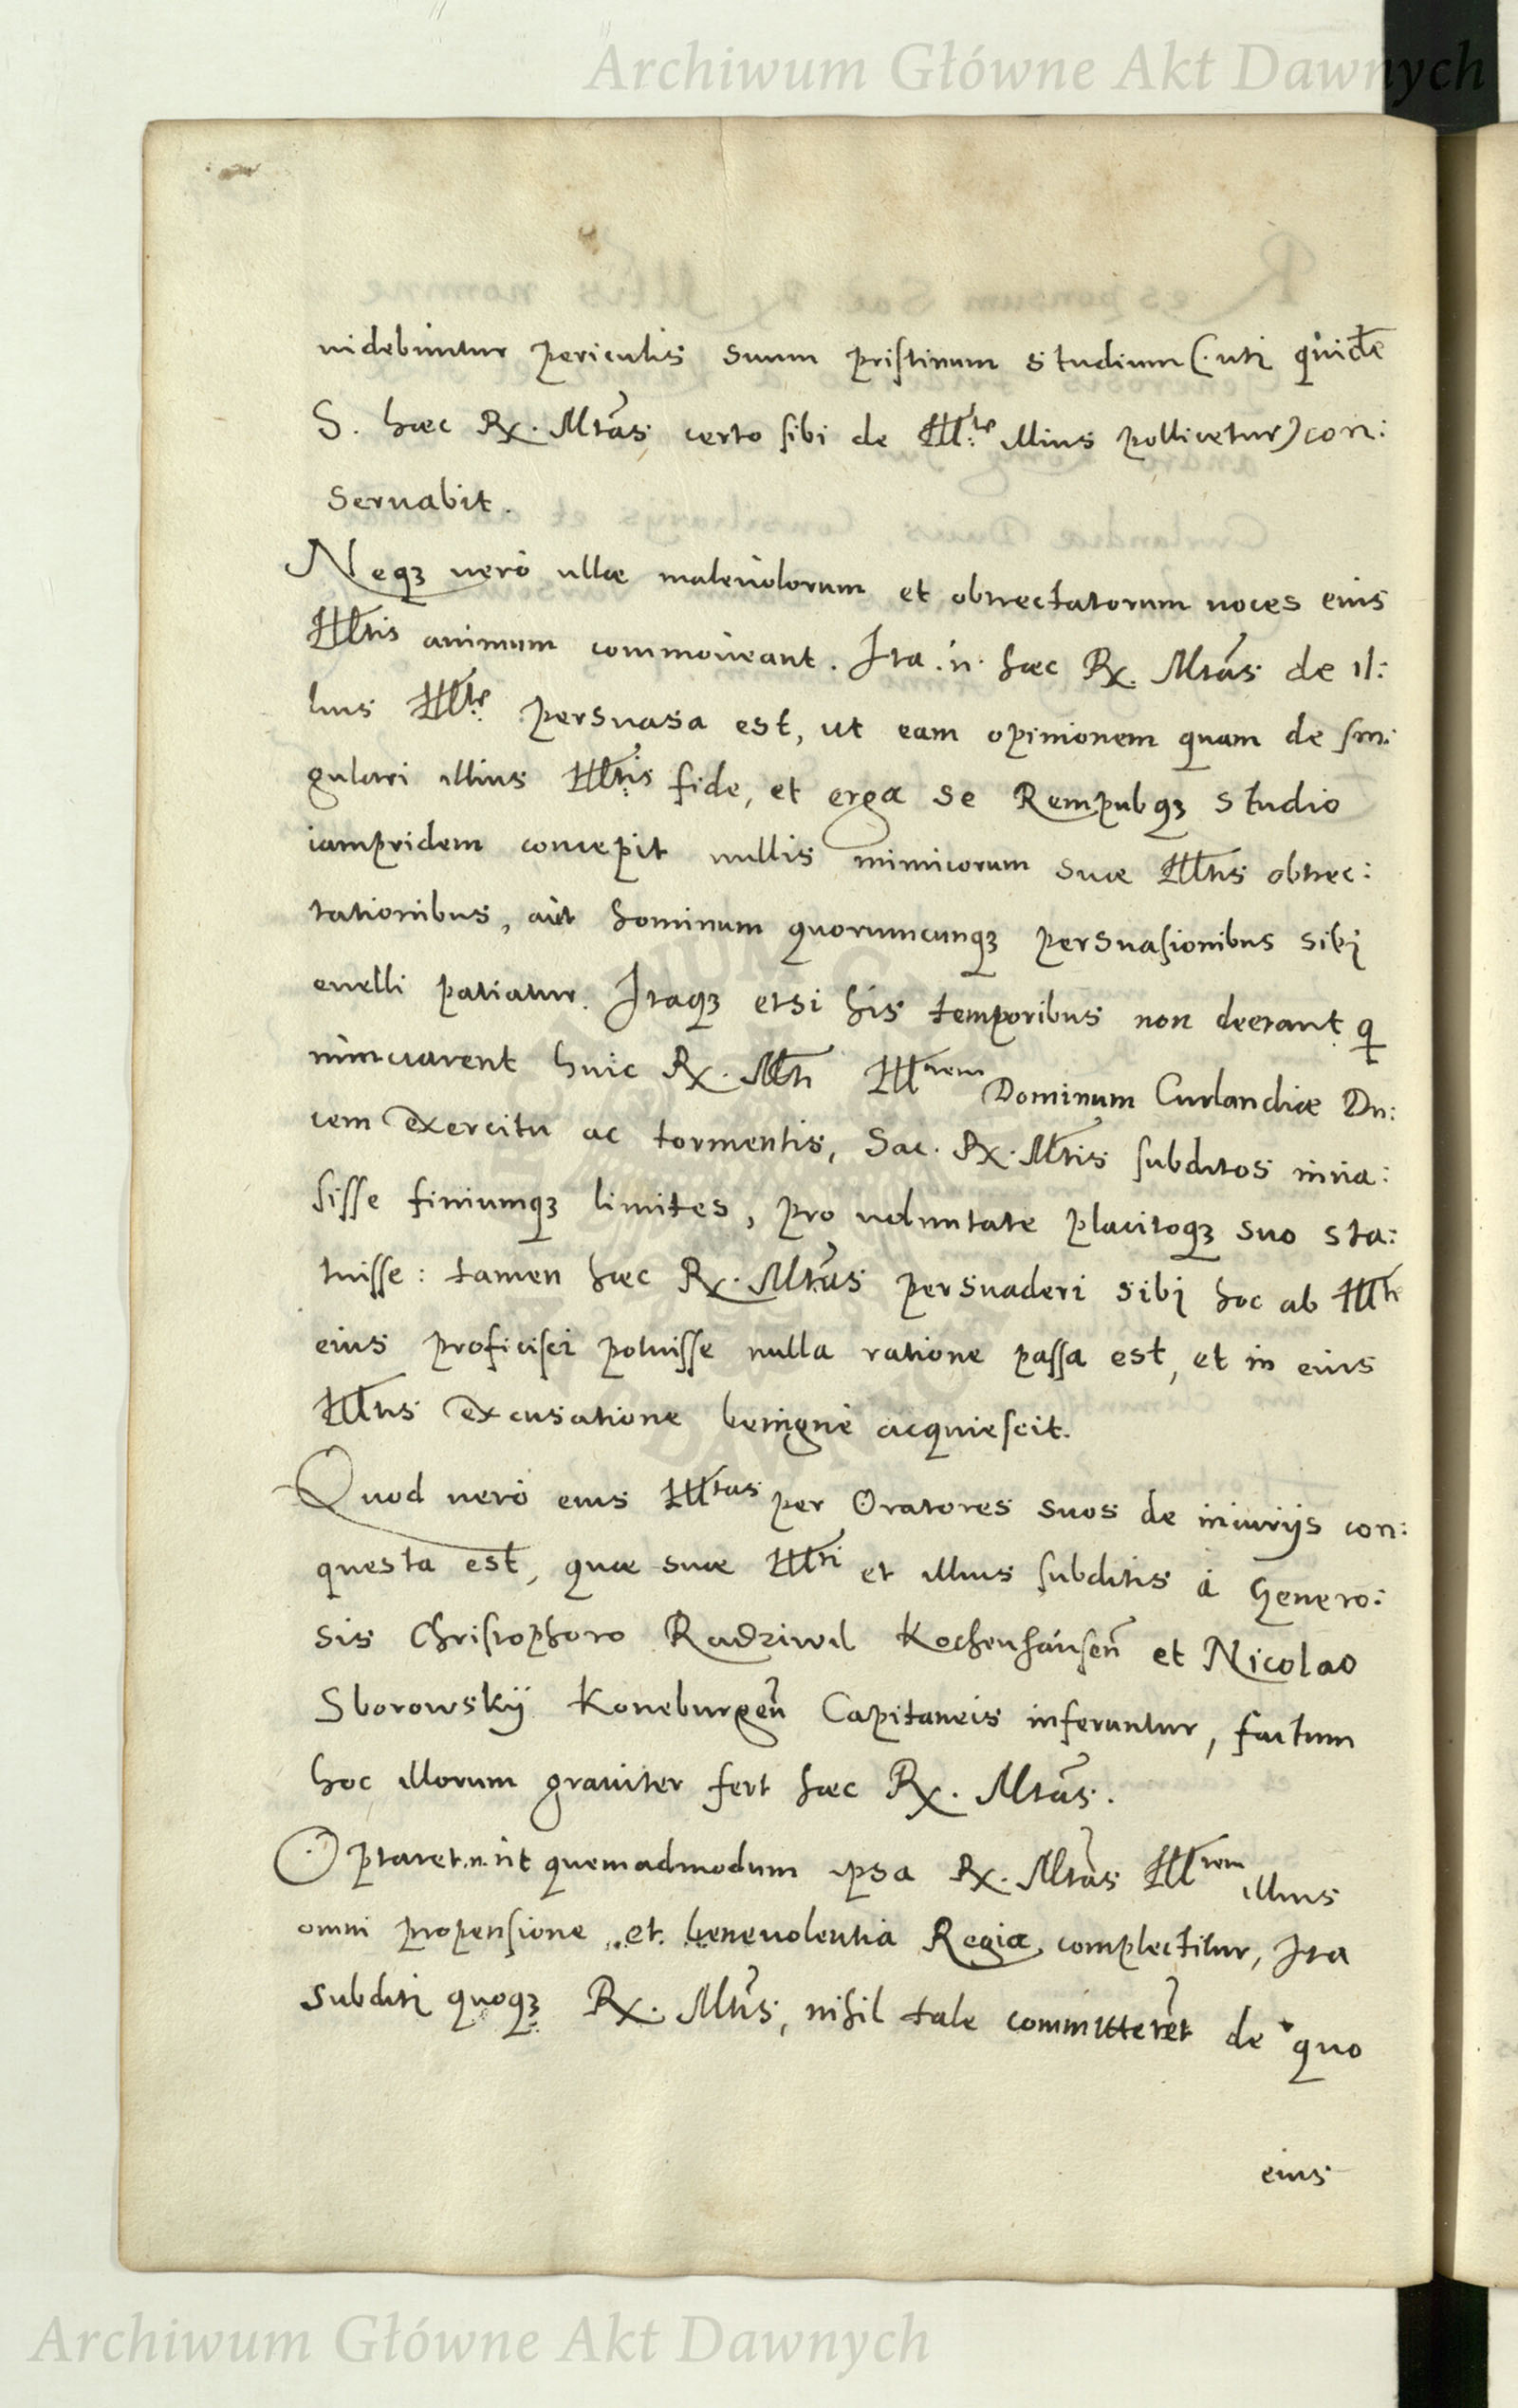 Archiwum Główne Akt Dawnych
uidebuntur periculis suum pristinum studium (uti quidē
S. haec Rx. Mtas certo sibi de Illte illius pollicetur) con:
seruabit.
Neqꝫ uerò ullae maleuolorum et obtrectatorum uoces eius
Illtis animum commoueant. Ita .n. haec Rx. Mtas de il:
lius Illte persuasa est, ut eam opinionem quam de sin:
gulari illius Illtis fide, et erga se Rempubqꝫ studio
iampridem concepit nullis inimicorum suae Illtis obtrec:
tationibus, aut hominum quorumcunqꝫ persuasionibus sibi
euelli patiatur. Itaqꝫ etsi his temporibus non deerant q
nunciarent huic Rx. Mti Illrem Dominum Curlandiae Du:
cem exercitu ac tormentis, Sac. Rx. Mtis subditos inua:
sisse finiumqꝫ limites, pro uoluntate placitoqꝫ suo sta:
tuisse: tamen haec Rx. Mtas persuaderi sibi hoc ab Illte
eius proficisci potuisse nulla ratione passa est, et in eius
Illtis excusatione benignè acquiescit.
Quod uerò eius Illtas per Oratores suos de iniurijs con:
questa est, quae suae Illti et illius subditis à Genero:
sis Christophoro Radziwil Kochenhausen̄ et Nicolao
Sborowskÿ Koneburgen̄ Capitaneis inferuntur, factum
hoc illorum grauiter fert haec Rx. Mtas.
Optaret .n. ut quemadmodum ipsa Rx. Mtas Illtem illius
omni propensione et beneuolentia Regia complectitur, Ita
subditi quoqꝫ Rx. Mtis, nihil tale committeret de quo
eius
Archiwum Główne Akt Dawnych